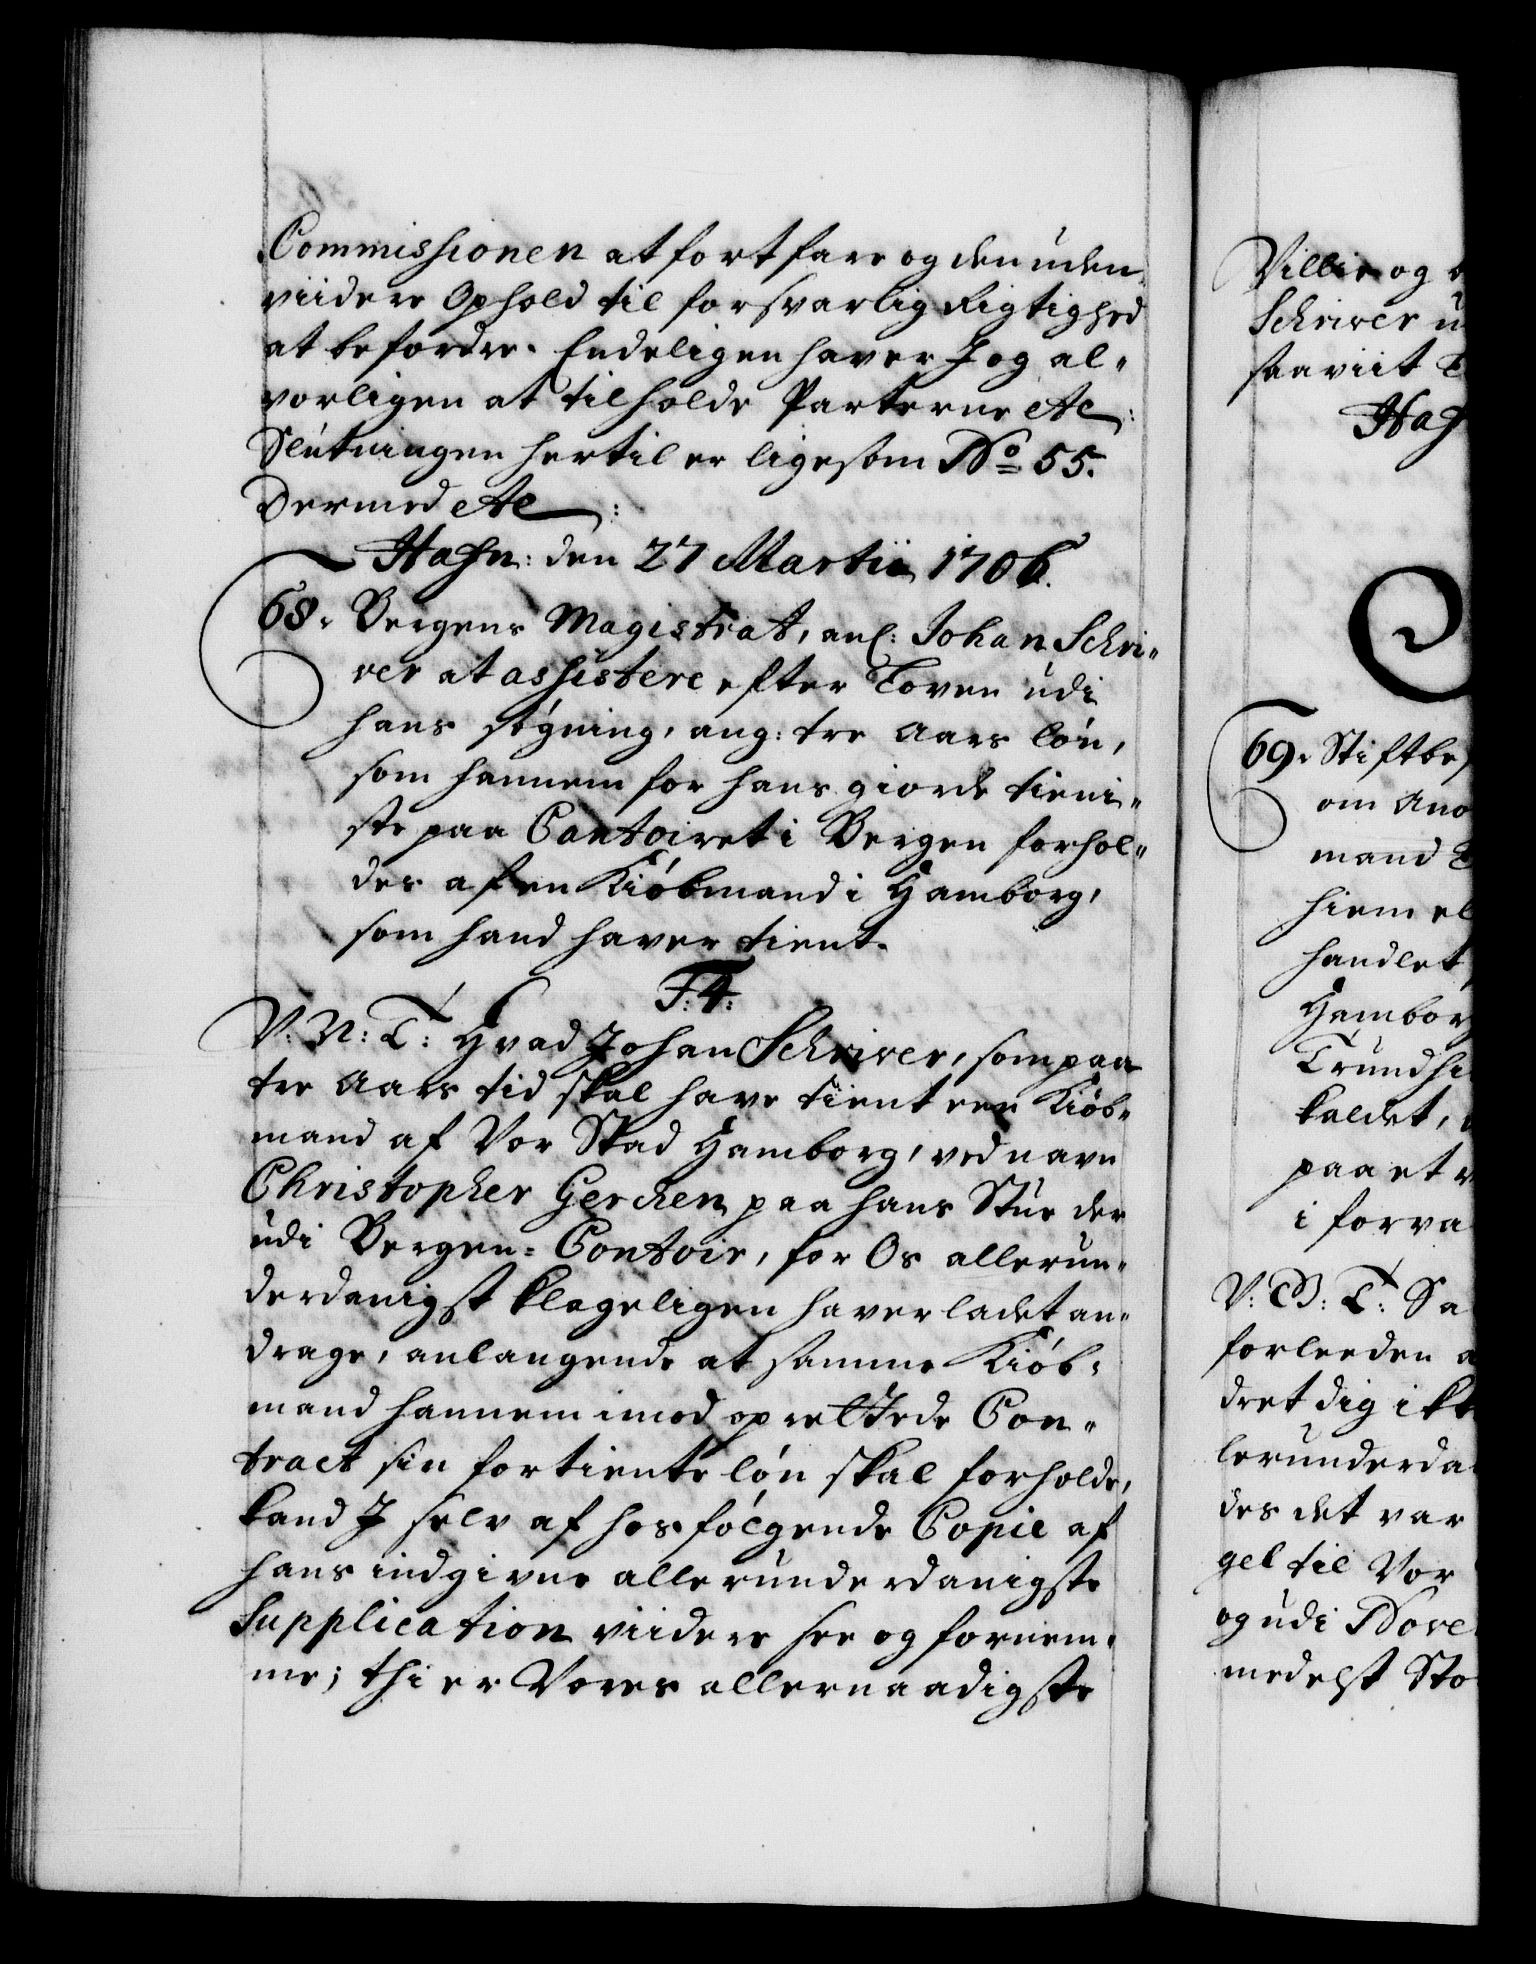 Commissionen at fortfare og den uden
viidere Ophold til forsvarlig Rigtighed
at befordre. Endeligen haver I og al„
vorligen at tilholde Parterne etc:
Slutningen hertil er ligesom No 55.
Dermed etc:
Hafn: den 27 Martii 1706.
68. Bergens Magistrat, anl: Johan Schri„
ver at assistere efter Loven udi
hans søgning, ang: tre Aars løn,
som hannem for hans giorde tieni„
ste paa Contoiret i Bergen forhol„
des af en Kiøbmand i Hamborg,
som hand haver tient.
F: 4:
V: N: T: Hvad Johan Schriver, som paa
tre Aars tid skal have tient een Kiøb„
mand af Vor Stad Hamborg, ved navn
Christopher Gercken paa hans Stue der
udi Bergen= Contoir, for Os allerun„
derdanigst klageligen haver ladet an„
drage, anlangende at samme Kiøb„
mand hannem imod oprettede Con„
tract sin fortiente løn skal forholde,
kand I selv af hosfølgende Copie af
hans indgivne allerunderdanigste
Supplication viidere see og fornem„
me; thi er Vores allernaadigste
Villie og
Schriver u
saaviit
Haf
69. Stiftbe
om And
mand
hiem el
handlet
Hambor
Trundhi
kaldet,
paa et v
i forva
V: G: T: Sa
forleeden a
dret dig ikk
lerunderda
des det var
gel til Vor
og udi Nove
medelst Sto